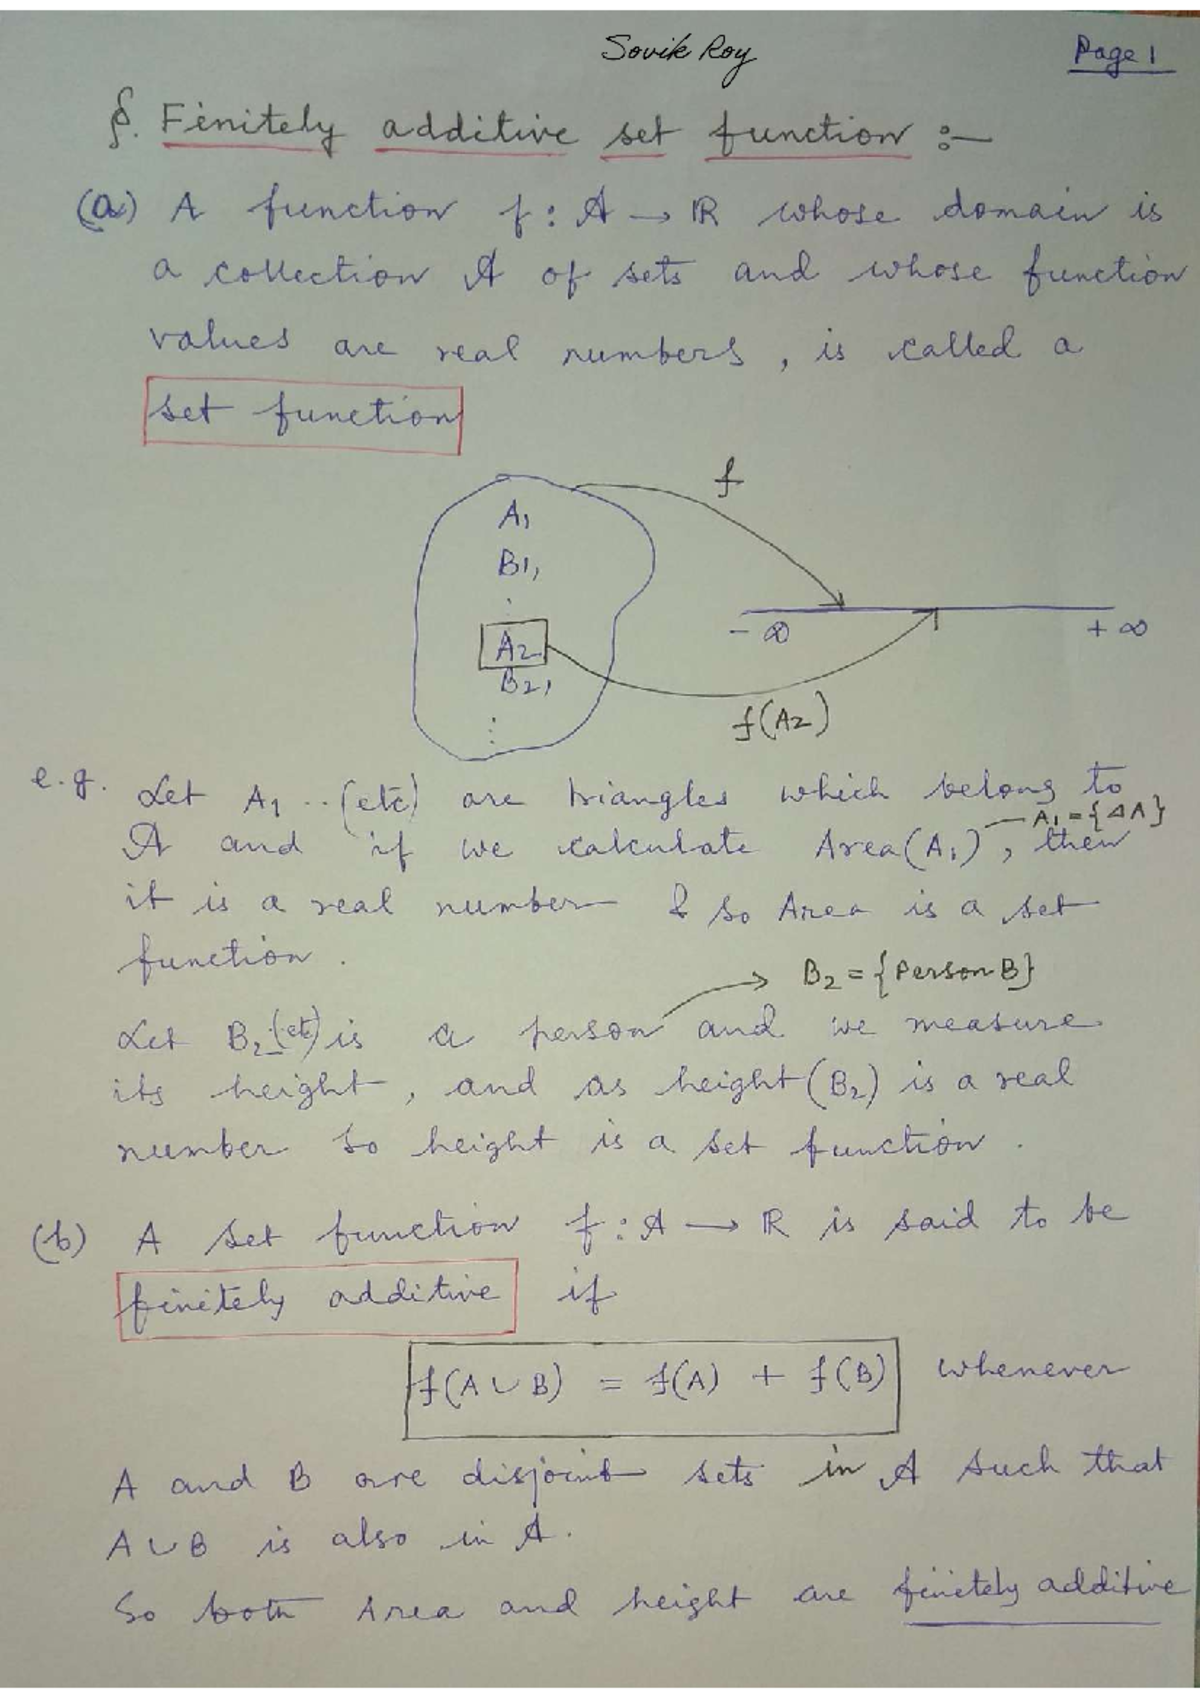 Sovik Roy
Page 1
§. Finitely additive set function :—
(a) A function f : A → ℝ whose domain is
a collection A of sets and whose function
values are real numbers, is called a
set function
f
A1
B1,
⋮
A2
B2,
⋮
- ∞
+ ∞
f(A2)
e.g. Let A1 .. (etc) are triangles which belong to
A1 = {△A}
A and if we calculate Area(A1), then
it is a real number & so Area is a set
function.
B2 = {Person B}
Let B2 (etc) is a person and we measure
its height, and as height(B2) is a real
number so height is a set function.
(b) A set function f : A → ℝ is said to be
finitely additive if
f(A ∪ B) = f(A) + f(B) whenever
A and B are disjoint sets in A such that
A ∪ B is also in A.
So both Area and height are finitely additive